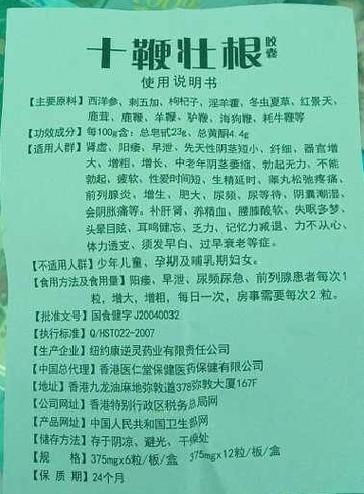 十鞭壮根胶囊
使用说明书
【主要原料】西洋参、刺五加、枸杞子、淫羊藿、冬虫夏草、红景天、
鹿茸、鹿鞭、羊鞭、驴鞭、海狗鞭、牦牛鞭等
【功效成分】每100g含：总皂甙23g、总黄酮4.4g
【适用人群】肾虚、阳痿、早泄、先天性阴茎短小、纤细、器官增
大、增粗、增长、中老年阴茎萎缩、勃起无力、不能
勃起、疲软、性爱时间短、生精延时、睾丸松弛疼痛、
前列腺炎、增生、肥大、尿频、尿等待、阴囊潮湿、
会阴胀痛等。补肝肾、养精血、腰膝酸软、失眠多梦、
头晕目眩、耳鸣健忘、乏力、记忆力减退、力不从心、
体力透支、须发早白、过早衰老等症。
【不适用人群】少年儿童、孕期及哺乳期妇女。
【食用方法及食用量】阳痿、早泄、尿频尿急、前列腺患者每次1
粒，增大，增粗，每日一次，房事需要每次2粒。
【批准文号】国食健字J20040032
【执行标准】Q/HST022-2007
【生产企业】纽约康逆灵药业有限责任公司
【中国总代理】香港医仁堂保健医药保健有限公司
【地址】香港九龙油麻地弥敦道378弥敦大厦167F
【公司网址】香港特别行政区税务总局网
【产品网址】中国人民共和国卫生部网
【储存方法】存于阴凉、避光、干燥处
【规 格】375mg×6粒/板/盒 375mg×12粒/板/盒
【保 质 期】24个月